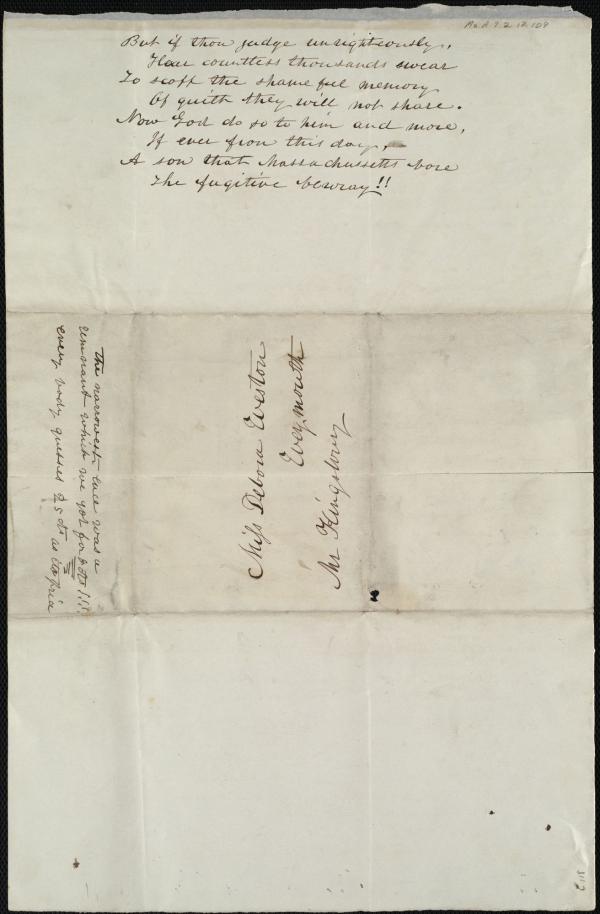 Ms.A.9.2.12.109
But if thou judge unrighteously,
Hear countless thousands swear
To scoff the shameful memory
Of guilt they will not share.
Now God do so to him and more,
If ever from this day,
A son that Massachussetts bore
The fugitive bewray!!
Miss Debora Weston
Weymouth
Mr Kingsbury
the narrowest lace was a
remnant which we got for cts!!!
every body guesses 25 cts as its price